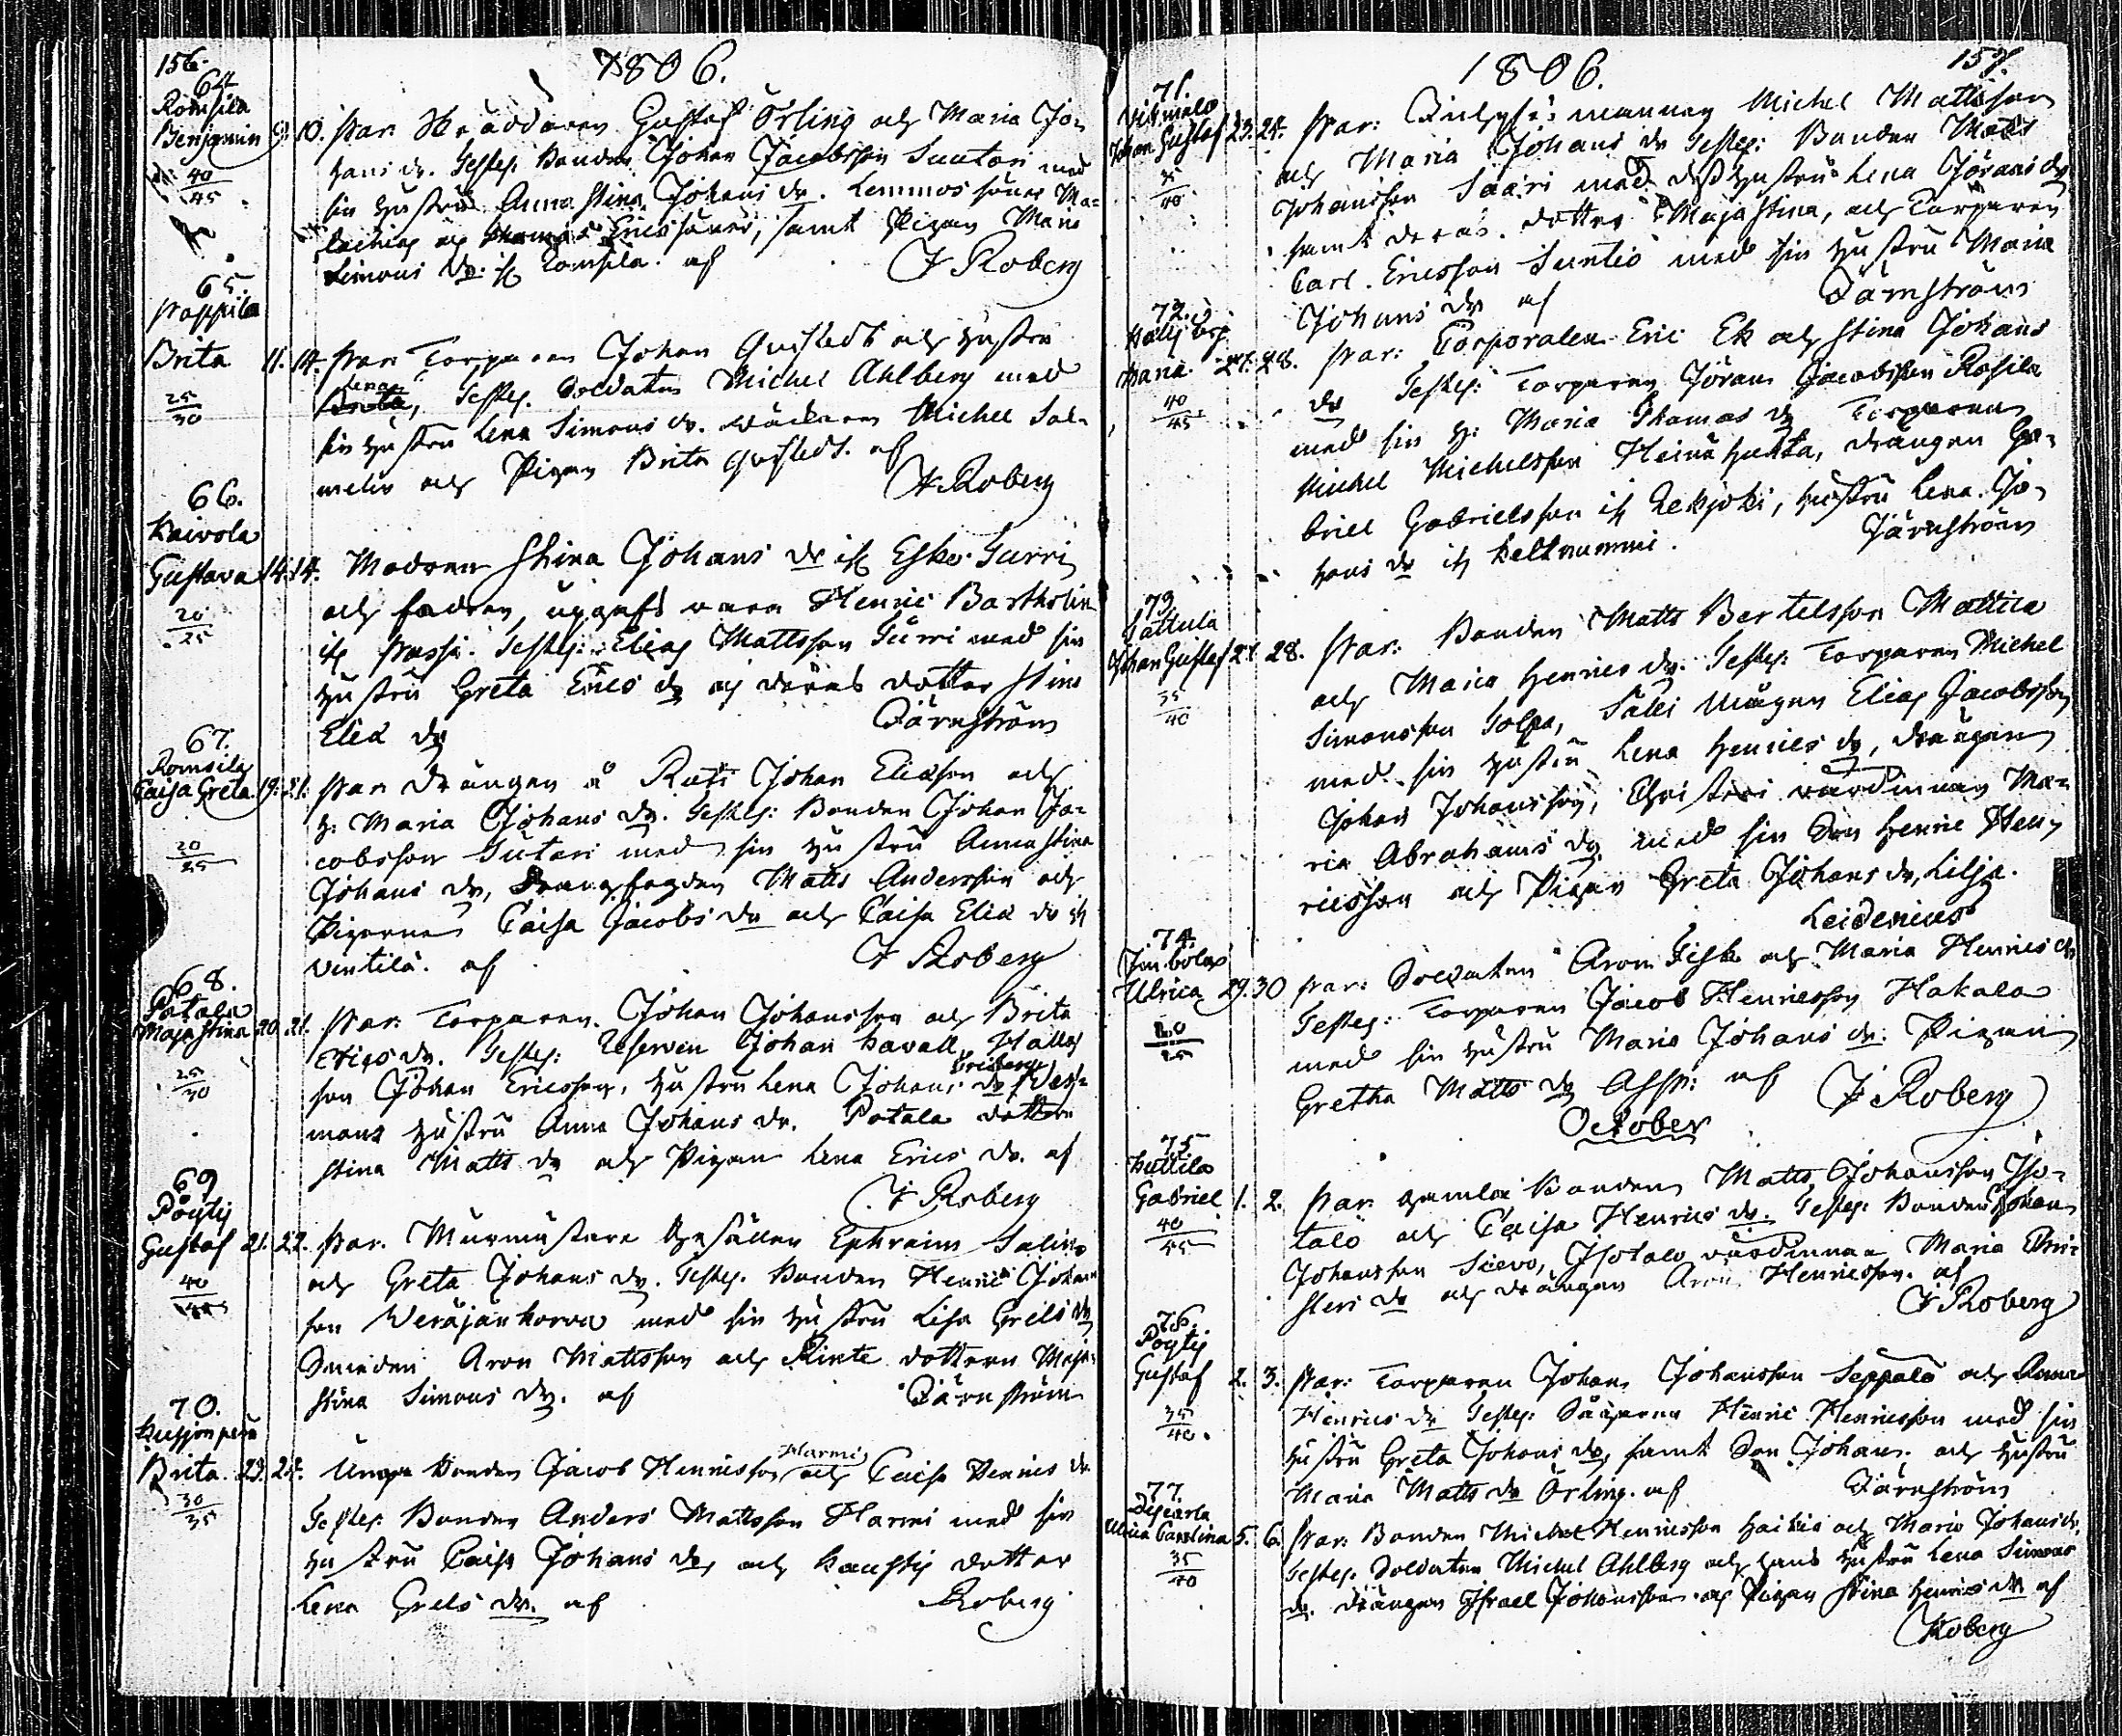 156.
1806.
64
Romsila
Benjamin 9. 10. Par. Skräddaren Gustaf Örling och Maria Jo-
40
45
hans dr. Testes. Bonden Johan Jacobsson Suutari med
sin hustru Anna Stina Johans dr. Lemmos söner Ma-
lachias och Thomas Erics söner, samt Pigan Maria
Simons dr. if Romsila. af
J Roberg
65.
Pappila
Brita 11. 14. Par. Torparen Johan Qvistedt och hustru
25
30
Lena
Brita, Testes. Soldaten Michel Ahlberg med
sin hustru Lena Simons dr. Wäckaren Michel Sal-
melin och Pigan Brita Qvistedt. af
J Roberg
66.
Kaivola
Gustava 14. 14. Modren Stina Johans dr if Esko Gurri
20
25
och fadren upgafs vara Henric Bartholin
if Passi. Testes: Elias Mattsson Gurri med sin
hustru Greta Erics dr och deras dotter Stina
Eliæ dr
Järnström
67.
Romsila
Caisa Greta 19. 21. Par. Drängen å Rati Johan Eliæson och
20
25
h: Maria Johans dr. Testes: Bonden Johan Ja-
cobsson Sutari med sin hustru Anna Stina
Johans dr, Matts Andersson och
Pigorna Caisa Jacobs dr och Caisa Eliæ dr if
Ventilä. af
J Roberg
68.
Potala
Maja Stina 20. 21. Par. Torparen Johan Johansson och Brita
25
30
Erics dr. Testes: Reserven Johan Kavall, Hallas
son Johan Ericsson, hustru Lena Johans dr
mans hustru Anna Johans dr. Potala dottern
Stina Matts dr och Pigan Lena Erics dr. af
J Roberg
69
Pöytis
Gustaf 21. 22. Par. Murmästare Gesällen Ephraim Salin
40
45
och Greta Johans dr. Testes. Bonden Henric Johans
son Veräjänkorva med sin hustru Lisa Grels dr
Smeden Aron Mattsson och Rinte dottern Maja
Stina Simons dr. af
Järnström
70.
Brita. 23. 24. Unga Bonden Jacob Henricsson Harmi och Caisa Henrics dr
30
35
Testes. Bonden Anders Mattsson Harmi med sin
hustru Caisa Johans dr, och dotter
Lena Grels dr. af
Roberg
1806.
157.
71.
Johan Gustaf 23. 24. Par: Michel Mattsson
35
40
och Maria Johans dr Testes: Bonden Matts
Johansson Saari med dess hustru Lena Jörans dr
samt deras dotter Maja Stina, och Torparen
Carl Ericsson Suntio med sin hustru Maria
Johans dr af
Järnström
72.
Maria 27. 28. Par: Corporalen Eric Ek och Stina Johans
40
45
dr Testes: Torparen Jöran Jacobsson Rosila
med sin h: Maria Thomas dr Torparen
Michel Michelsson Heinä huhta, Drängen Ga-
briel Gabrielsson if Lekjoki, hustru Lena Jo-
hans dr if Keltnummi.
Järnström
73
Lattula
Johan Gustaf 27. 28. Par: Bonden Matts Bertelsson Mattila
35
40
och Maria Henrics dr. Testes: Torparen Michel
Simonsson Solpa, mågen Elias Jacobsson
med sin hustru Lena Henrics dr, Drängen
Johan Johansson, Christeri värdinnan Ma-
ria Abrahams dr med sin Son Henric Hen-
ricsson och Pigan Greta Johans dr, Lilja.
Leidenius
74.
Ulrica 29. 30 Par: Soldaten Aron Fisk och Maria Henrics dr
20
25
Testes: Torparen Jacob Henricsson Hakala
med sin hustru Maria Johans dr. Pigan
Gretha Matts dr af
J Roberg
October
75
Kuttila
Gabriel 1. 2. Par. gamla Bonden Matts Johansson Iso-
40
45
talo och Caisa Henrics dr. Testes. Bonden Johan
Johansson Sievo, Isotalo värdinnan Maria Chri-
steri dr och drängen Aron Henricsson. af
J Roberg
76.
Pöytis
Gustaf 2. 3. Par: Torparen Johan Johansson Seppälä och Anna
35
40.
Henrics dr Testes: Henric Henricsson med sin
hustru Greta Johans dr, samt Son Johan och hustru
Maria Matts dr Örling. af
Järnström
77.
Ulrica Carolina 5. 6. Par: Bonden Michel Henricsson Haikio och Maria Johans dr.
35
40
Testes. Soldaten Michel Ahlberg och hans hustru Lena Simons
dr. Drängen Israel Johansson och Pigan Stina Henrics dr af
Roberg